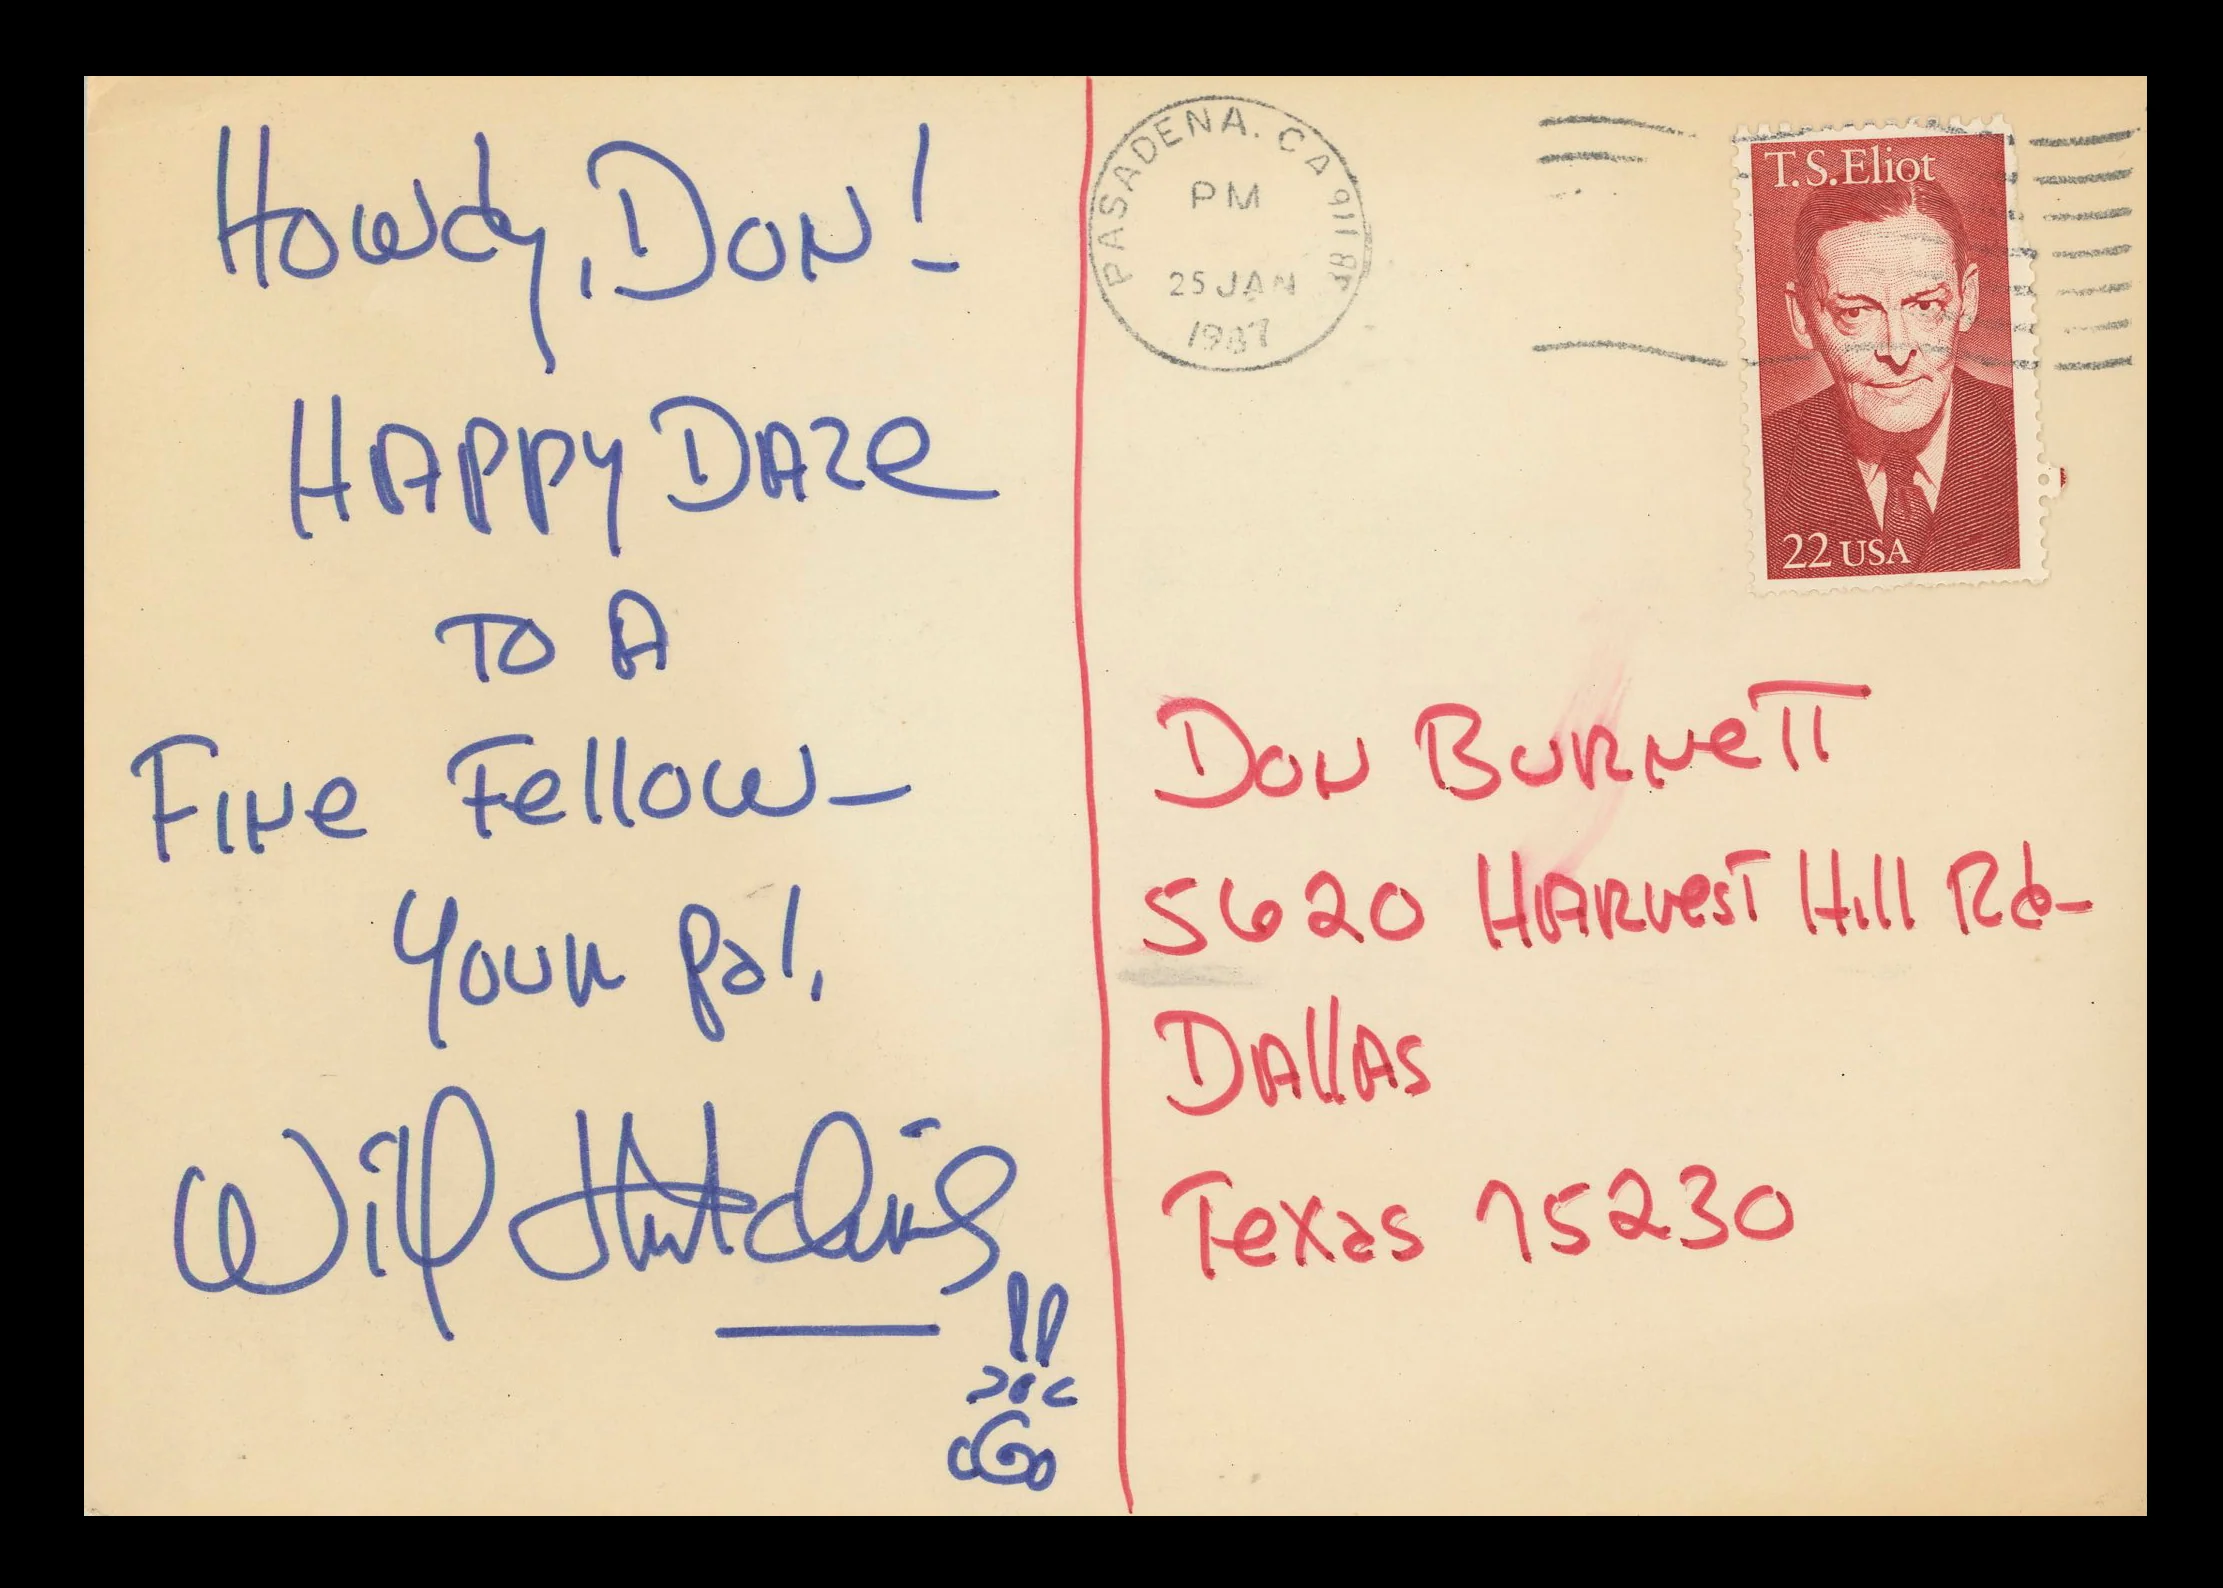 Howdy, Don!
Happy Daze
to a
Fine Fellow—
Your pal,
Will Hutchins
PASADENA, CA 911
PM
25 JAN
1987
T.S. Eliot
22 USA
Don Burnett
5620 Harvest Hill Rd—
Dallas
Texas 75230